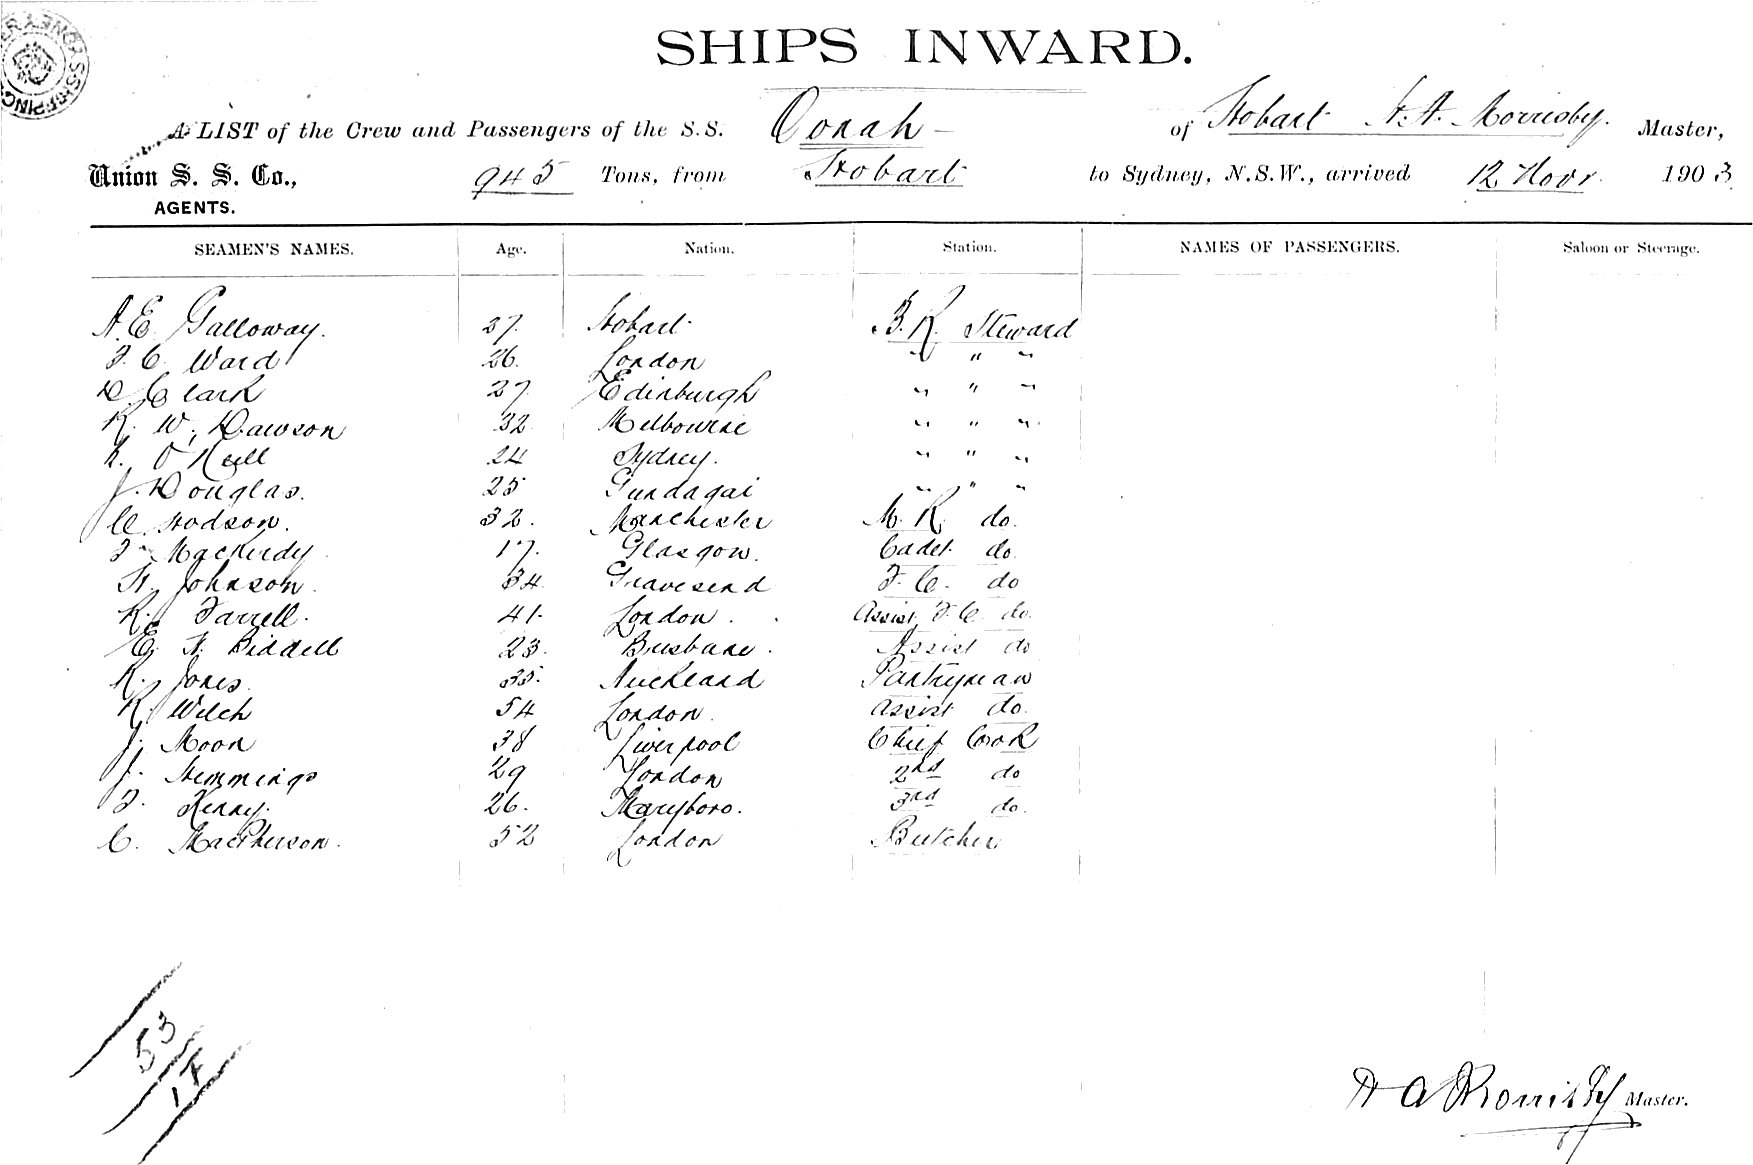 SHIPS INWARD.
A LIST of the Crew and Passengers of the S.S. Oonah - of Hobart H. A. Morrisby. Master,
Union S. S. Co., 945 Tons, from Hobart to Sydney, N.S.W., arrived 12 Novr. 1903.
AGENTS.
SEAMEN'S NAMES. Age. Nation. Station. NAMES OF PASSENGERS. Saloon or Steerage.
A. E. Galloway. 37. Hobart B. R. Steward
F. C. Ward 26. London " " "
D. Clark 27. Edinburgh " " "
R. W. Dawson 32 Melbourne " " "
O'Neill 24 Sydney. " " "
J. Douglas. 25 Gundagai " " "
C. Hodson. 32. Manchester M. R. do.
F. MacKirdy. 17. Glasgow. Cadet do.
H. Johnson. 34. Gravesend F. C. do
R. Farrell. 41. London. Assist F. C. do.
E. H. Biddell 23. Brisbane. Assist do
R. Jones. 35. Auckland Pantryman
R. Welch 54 London. Assist do.
J. Moon 38 Liverpool Chief Cook
J. Hemmings 29 London 2nd do
F. Kenny. 26. Maryboro. 3rd do.
C. MacPherson. 52 London Butcher
53
H A Morrisby Master.